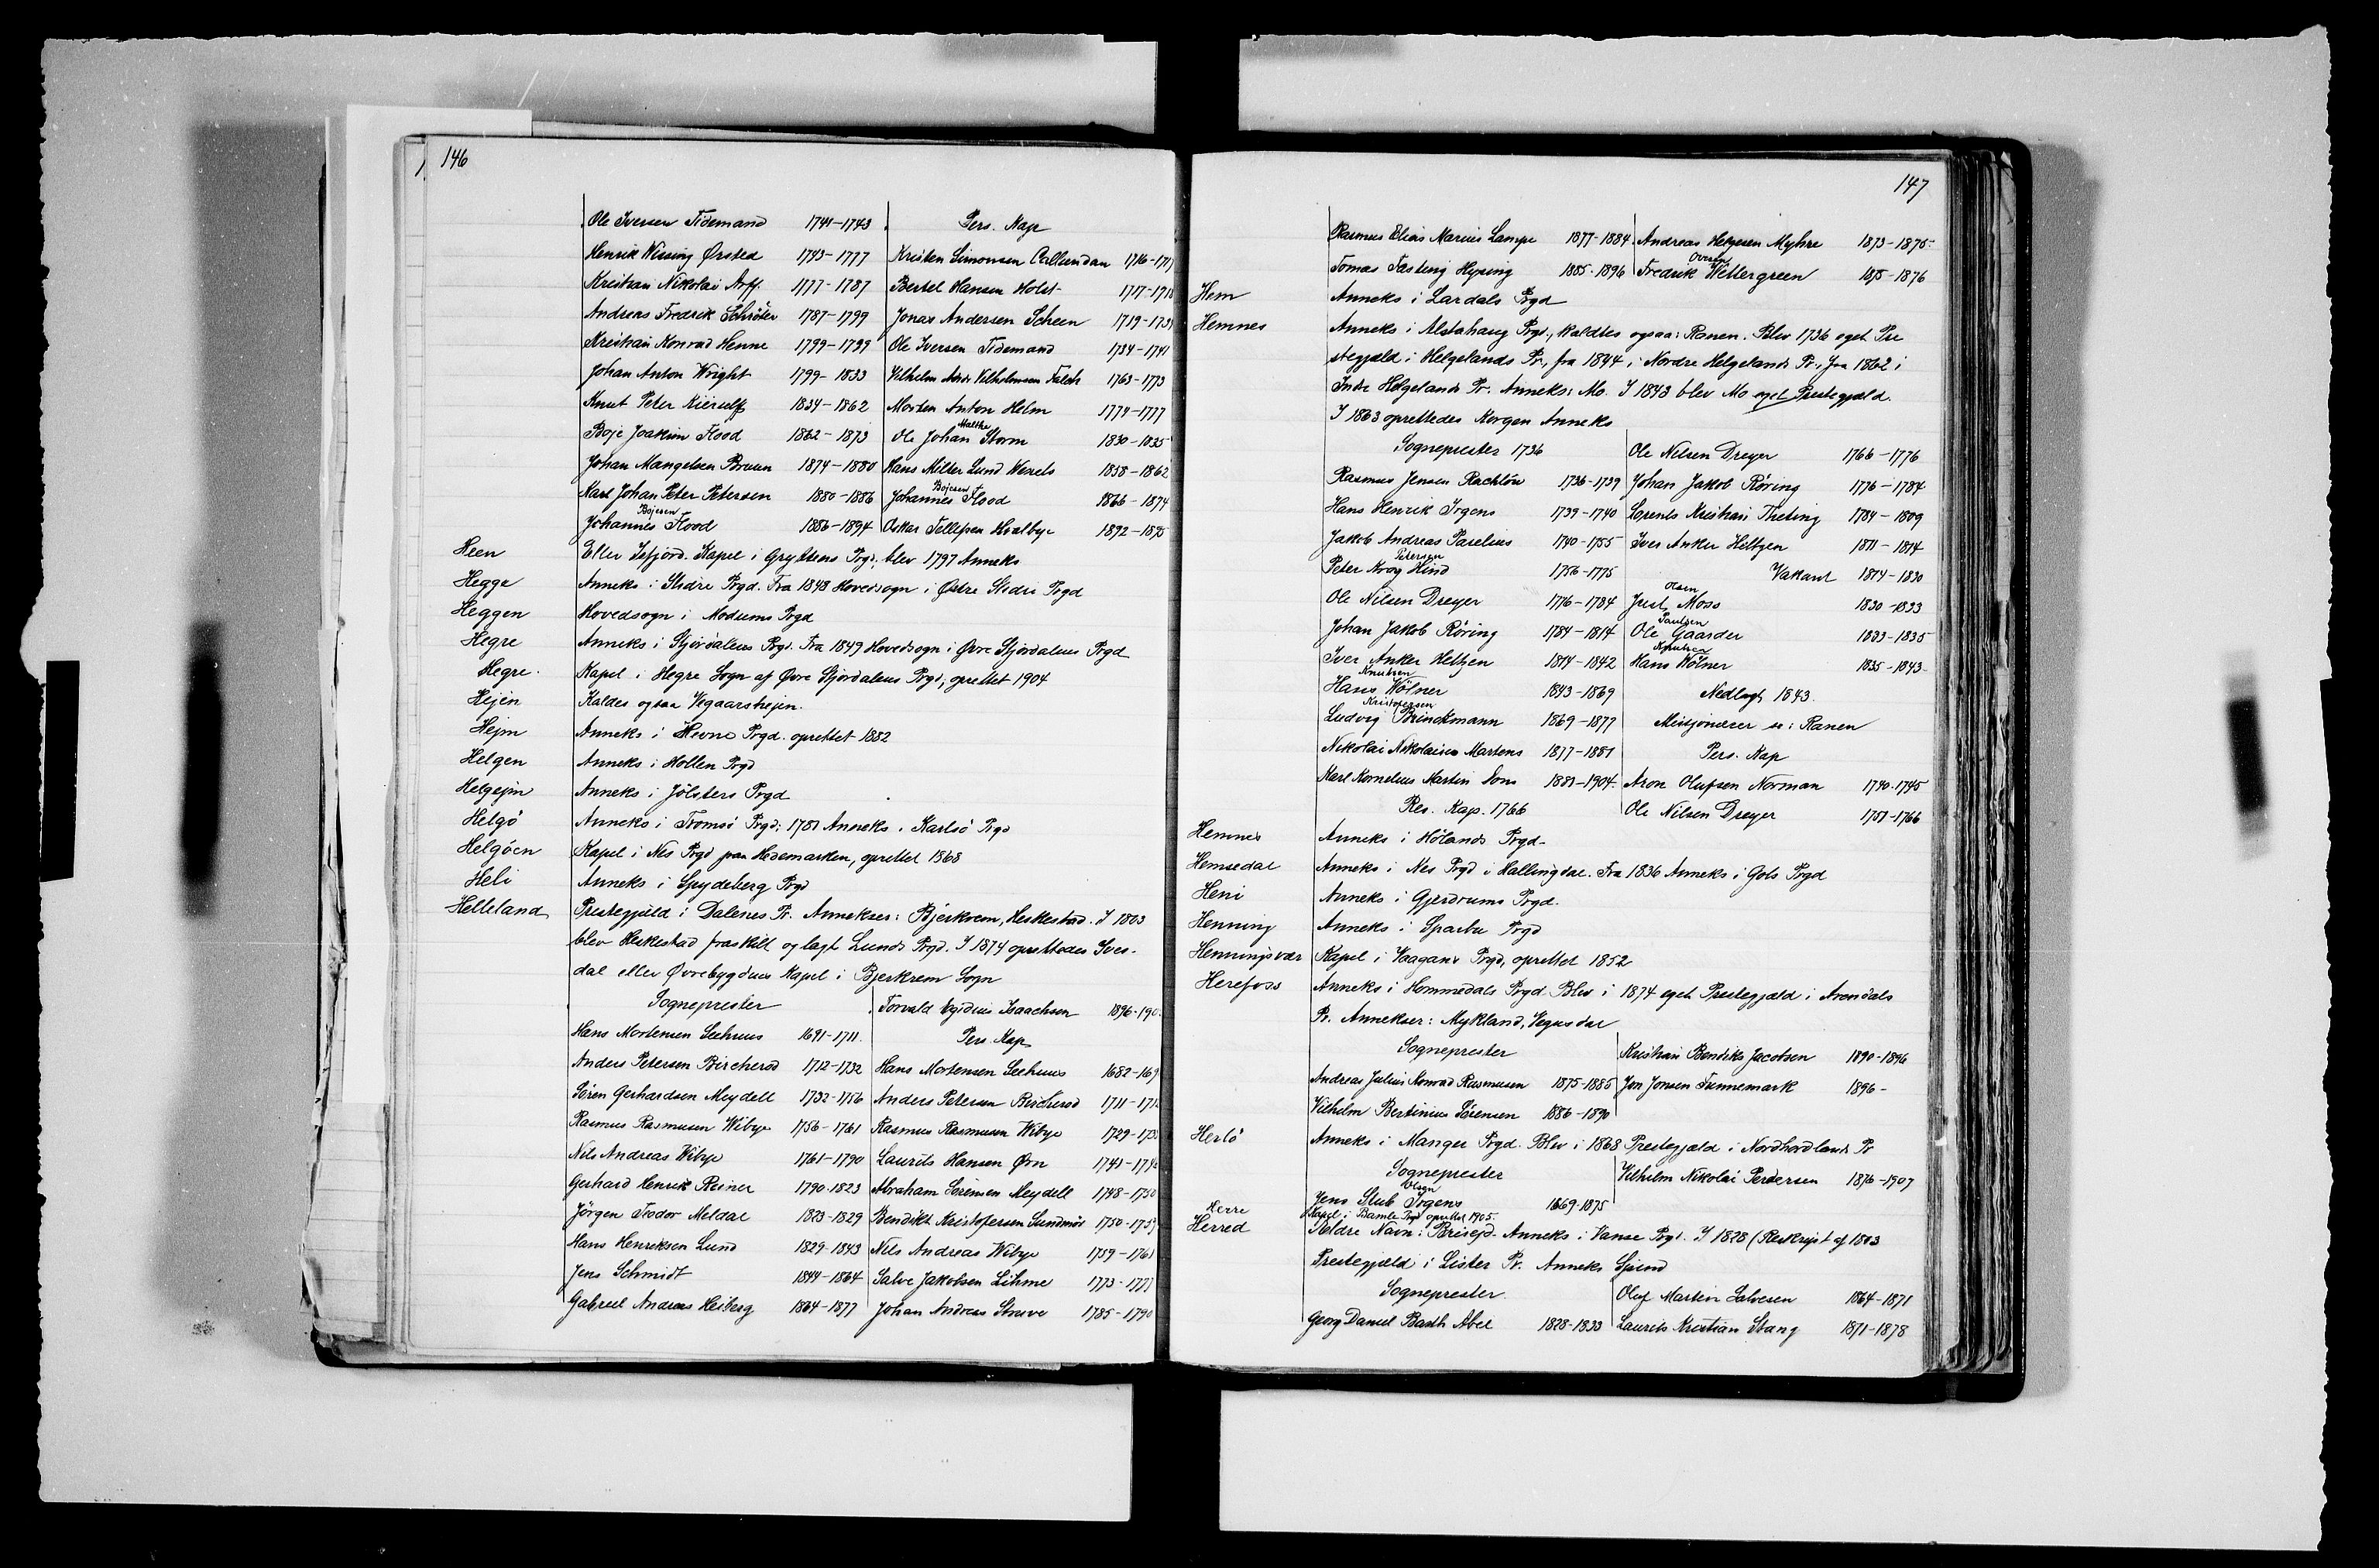 146
Ole Iversen Tidemand 1741-1743 Pers. Kap
Henrik Wissing Ørsted 1743-1777 Kristen Simonsen Callundan 1716-1717
Kristian Nikolai Arff. 1777-1787 Bertel Hansen Holst 1717-1718
Andreas Fredrik Schröter 1787-1799 Jonas Andersen Scheen 1719-173
Kristian Konrad Henne 1799-1799 Ole Iversen Tidemand 1734-1741
Johan Anton Wright 1799-1833 Vilhelm Vilhelmsen Falch 1763-1773
Knut Peter Kierulf 1834-1862 Morten Anton Helm 1774-1777
Boje Joakim Flood 1862-1873 Ole Johan Malthe Storm 1830-1835
Johan Mangelsen Bruun 1874-1880 Hans Milter Lund Wessels 1858-1862
Karl Johan Peter Petersen 1880-1886 Johannes Bojesen Flood 1866-1874
Johannes Bojesen Flood 1886-1894 Oskar Tellefsen Hvalbye 1892-1895
Heen Eller Isfjord. Kapel i Gryttens Prgd; blev 1797 Anneks
Hegge Anneks i Slidre Prgd. Fra 1848 Hovedsogn i Østre Slidre Prgd
Heggen Hovedsogn i Modums Prgd
Hegre Anneks i Stjørdalens Prgd. Fra 1849 Hovedsogn i Øvre Stjørdalens Prgd
Hegre. Kapel i Hegre Sogn af Øvre Stjørdalens Prgd, oprettet 1904
Hejen Kaldes ogsaa Vegaarshejen.
Hejm Anneks i Hevne Prgd. oprettet 1882
Helgen Anneks i Hollen Prgd
Helgejm Anneks i Jölsters Prgd
Helgö Anneks i Tromsö Prgd; 1781 Anneks i Karlsö Prgd
Helgöen Kapel i Nes Prgd paa Hedemarken, oprettet 1868
Heli Anneks i Spydeberg Prgd
Helleland Prestegjæld i Dalenes Pr. Annekser: Bjerkrem, Heskestad. I 1803
blev Heskestad fraskilt og lagt Lunds Prgd. I 1874 oprettedes Ives-
dal eller Øvrebygdens Kapel i Bjerkrem Sogn
Sogneprester Torvald Egidius Isaachsen 1896-190
Hans Mortensen Seehuus 1691-1711. Pers. Kap
Anders Petersen Bircherod 1712-1732 Hans Mortensen Seehuus 1682-169
Sören Gerhardsen Meydell 1732-1756 Anders Petersen Bircherod 1711-1712
Rasmus Rasmusen Wibye 1756-1761 Rasmus Rasmusen Wibye 1729-173
Nils Andreas Wibye 1761-1790 Laurits Hansen Ørn 1741-174
Gerhard Henrik Reiner 1790-1823 Abraham Sörensen Meydell 1748-1750
Jörgen Teodor Meldal 1823-1829 Bendikt Kristofersen Sundmör 1750-1759
Hans Henriksen Lund 1829-1843 Nils Andreas Wibye 1759-1761
Jens Schmidt 1844-1864 Salve Jakobsen Lihme 1773-1777
Gabriel Andreas Heiberg 1864-1877 Johan Andreas Struve 1785-1790
147
Rasmus Elias Marius Lampe 1877-1884 Andreas Helgesen Myhre 1873-1875
Tomas Fasting Hysing 1885-1896 Fredrik Oversen Wettergreen 1875-1876
Hem Anneks i Lardals Prgd
Hemnes Anneks i Alstahaug Prgd., kaldtes ogsaa: Ranen. Blev 1736 eget Pre
stegjæld i Helgelands Pr., fra 1844 i Nordre Helgelands Pr., fra 1862 i
Indre Helgelands Pr. Anneks: Mo. I 1843 blev Mo eget Prestegjæld.
I 1863 oprettedes Korgen Anneks
Sogneprester 1736 Ole Nilsen Dreyer 1766-1776
Rasmus Jensen Rachlöw 1736-1739 Johan Jakob Röring 1776-1784
Hans Henrik Irgens 1739-1740 Lorents Kristian Theting 1784-1809
Jakob Andreas Parelius 1740-1755 Iver Anker Heltzen 1811-1814
Peter Krog Petersen Hind 1756-1775 Vakant 1814-1830
Ole Nilsen Dreyer 1776-1784 Just Olsen Moss 1830-1833
Johan Jakob Röring 1784-1814 Ole Paulsen Gaarder 1833-1835
Iver Anker Heltzen 1814-1842 Hans Knutsen Wölner 1835-1843
Hans Knutsen Wölner 1843-1869 Nedlagt 1843.
Ludvig Kristofersen Brinckmann 1869-1877 Misjonærer se: Ranen
Nikolai Nikolaisen Martens 1877-1881 Pers. Kap
Karl Kornelius Martin Dons 1881-1904 Aron Olufsen Norman 1740-1745
Res. Kap. 1766 Ole Nilsen Dreyer 1751-1766
Hemnes Anneks i Hölands Prgd-
Hemsedal Anneks i Nes Prgd i Hallingdal. Fra 1836 Anneks i Gols Prgd
Heni Anneks i Gjerdrums Prgd.
Henning Anneks i Sparbu Prgd
Henningsvær Kapel i Vaagans Prgd, oprettet 1852
Herefoss Anneks i Hommedals Prgd. Blev i 1874 eget Prestegjæld i Arendals
Pr. Annekser: Mykland, Vegusdal
Sogneprester Kristian Bendiks Jacobsen 1890-1896
Andreas Julius Konrad Rasmusen 1875-1885 Jon Jonsen Tunnemark 1896-
Vilhelm Bertinius Sörensen 1886-1890
Herlö Anneks i Manger Prgd. Blev i 1868 Prestegjæld i Nordhordlands Pr
Sogneprester Vilhelm Nikolai Perdersen 1876-1907
Jens Stub Olsen Irgens 1869-1875
Herre Kapel i Bamle Prgd oprettet 1905.
Herred Ældre Navn: Brisejd. Anneks i Vanse Prgd. I 1828 (Reskript af 1803
Prestegjæld i Lister Pr. Anneks Spind
Sogneprester Oluf Marten Salvesen 1864-1871
Georg Daniel Barth Abel 1828-1833 Laurits Kristian Stang 1871-1878